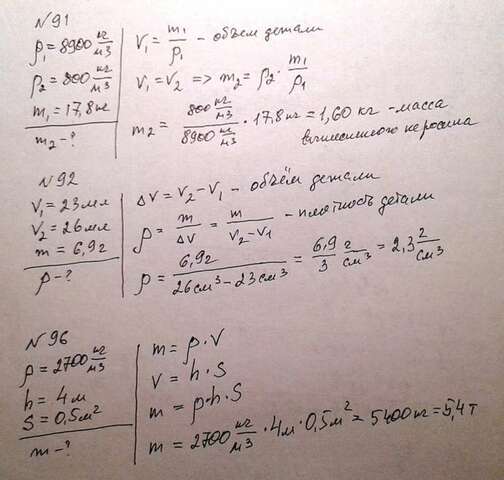 N 91
ρ₁ = 8900 кг/м³
ρ₂ = 800 кг/м³
m₁ = 17,8 кг
m₂ - ?
V₁ = m₁/ρ₁ - объем детали
V₁ = V₂ => m₂ = ρ₂ · m₁/ρ₁
m₂ = 800 кг/м³ / 8900 кг/м³ · 17,8 кг = 1,60 кг - масса
вытесненного керосина
N 92
V₁ = 23 мл
V₂ = 26 мл
m = 6,9 г
ρ - ?
ΔV = V₂ - V₁ - объём детали
ρ = m/ΔV = m/V₂-V₁ - плотность детали
ρ = 6,9 г / 26 см³ - 23 см³ = 6,9/3 г/см³ = 2,3 г/см³
N 96
ρ = 2700 кг/м³
h = 4 м
S = 0,5 м²
m - ?
m = ρ · V
V = h · S
m = ρ · h · S
m = 2700 кг/м³ · 4 м · 0,5 м² = 5400 кг = 5,4 т